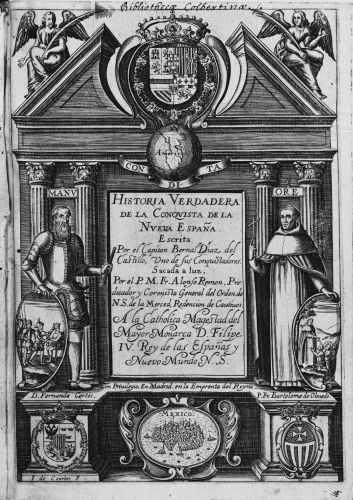 Bibliothecæ Colbertinæ
America
CON DI TA
MANV ORE
HISTORIA VERDADERA
DE LA CONQVISTA DE LA
NVEVA ESPAÑA
Escrita
Por el Capitan Bernal Diaz, del
Castillo, Vno de sus Conquistadores.
Sacada a luz,
Por el P. M. Fr. Alonso Remon, Pre-
dicador y Coronista General del Orden de
N. S. de la Merced, Redencion de Cautivos.
A la Catholica Magestad del
Mayor Monarca D. Filipe
IV. Rey de las Españas y
Nuevo Mundo N. S.
Con Privilegio, En Madrid, en la Emprenta del Reyno
D. Fernando Cortés.
P. Fr. Bartolome de Olmedo
MEXICO.
I de Courbes F.